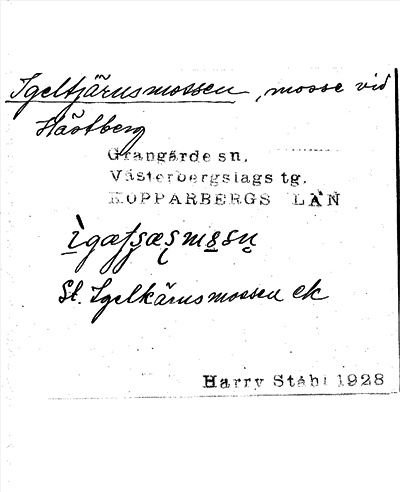 Igeltjärnsmossen, mosse vid
Håstberg
Grangärde sn.
Västerbergslags tg.
KOPPARBERGS LÄN
St. Igelkärnsmossen ek
Harry Ståhl 1928